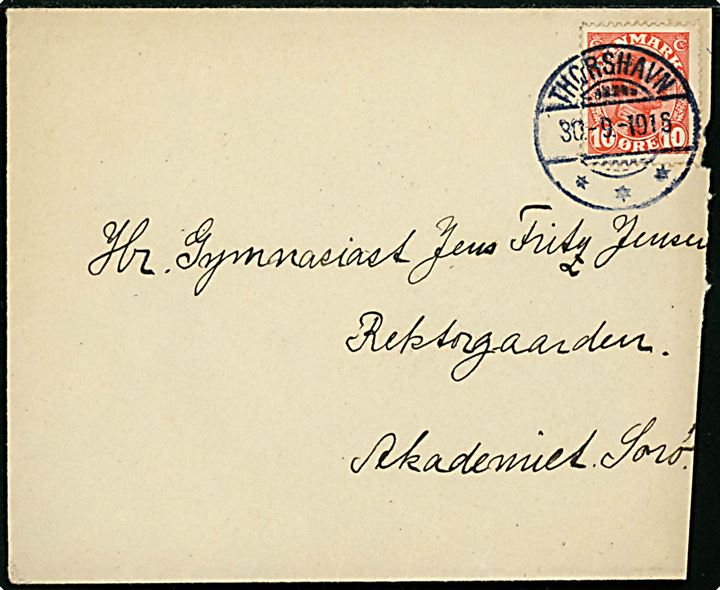 DANMARK
THORSHAVN
30.-9.-1916
10 ØRE 10
Hr. Gymnasiast Jens Fritz Jensen
Rektorgaarden.
Akademiet. Sorø.